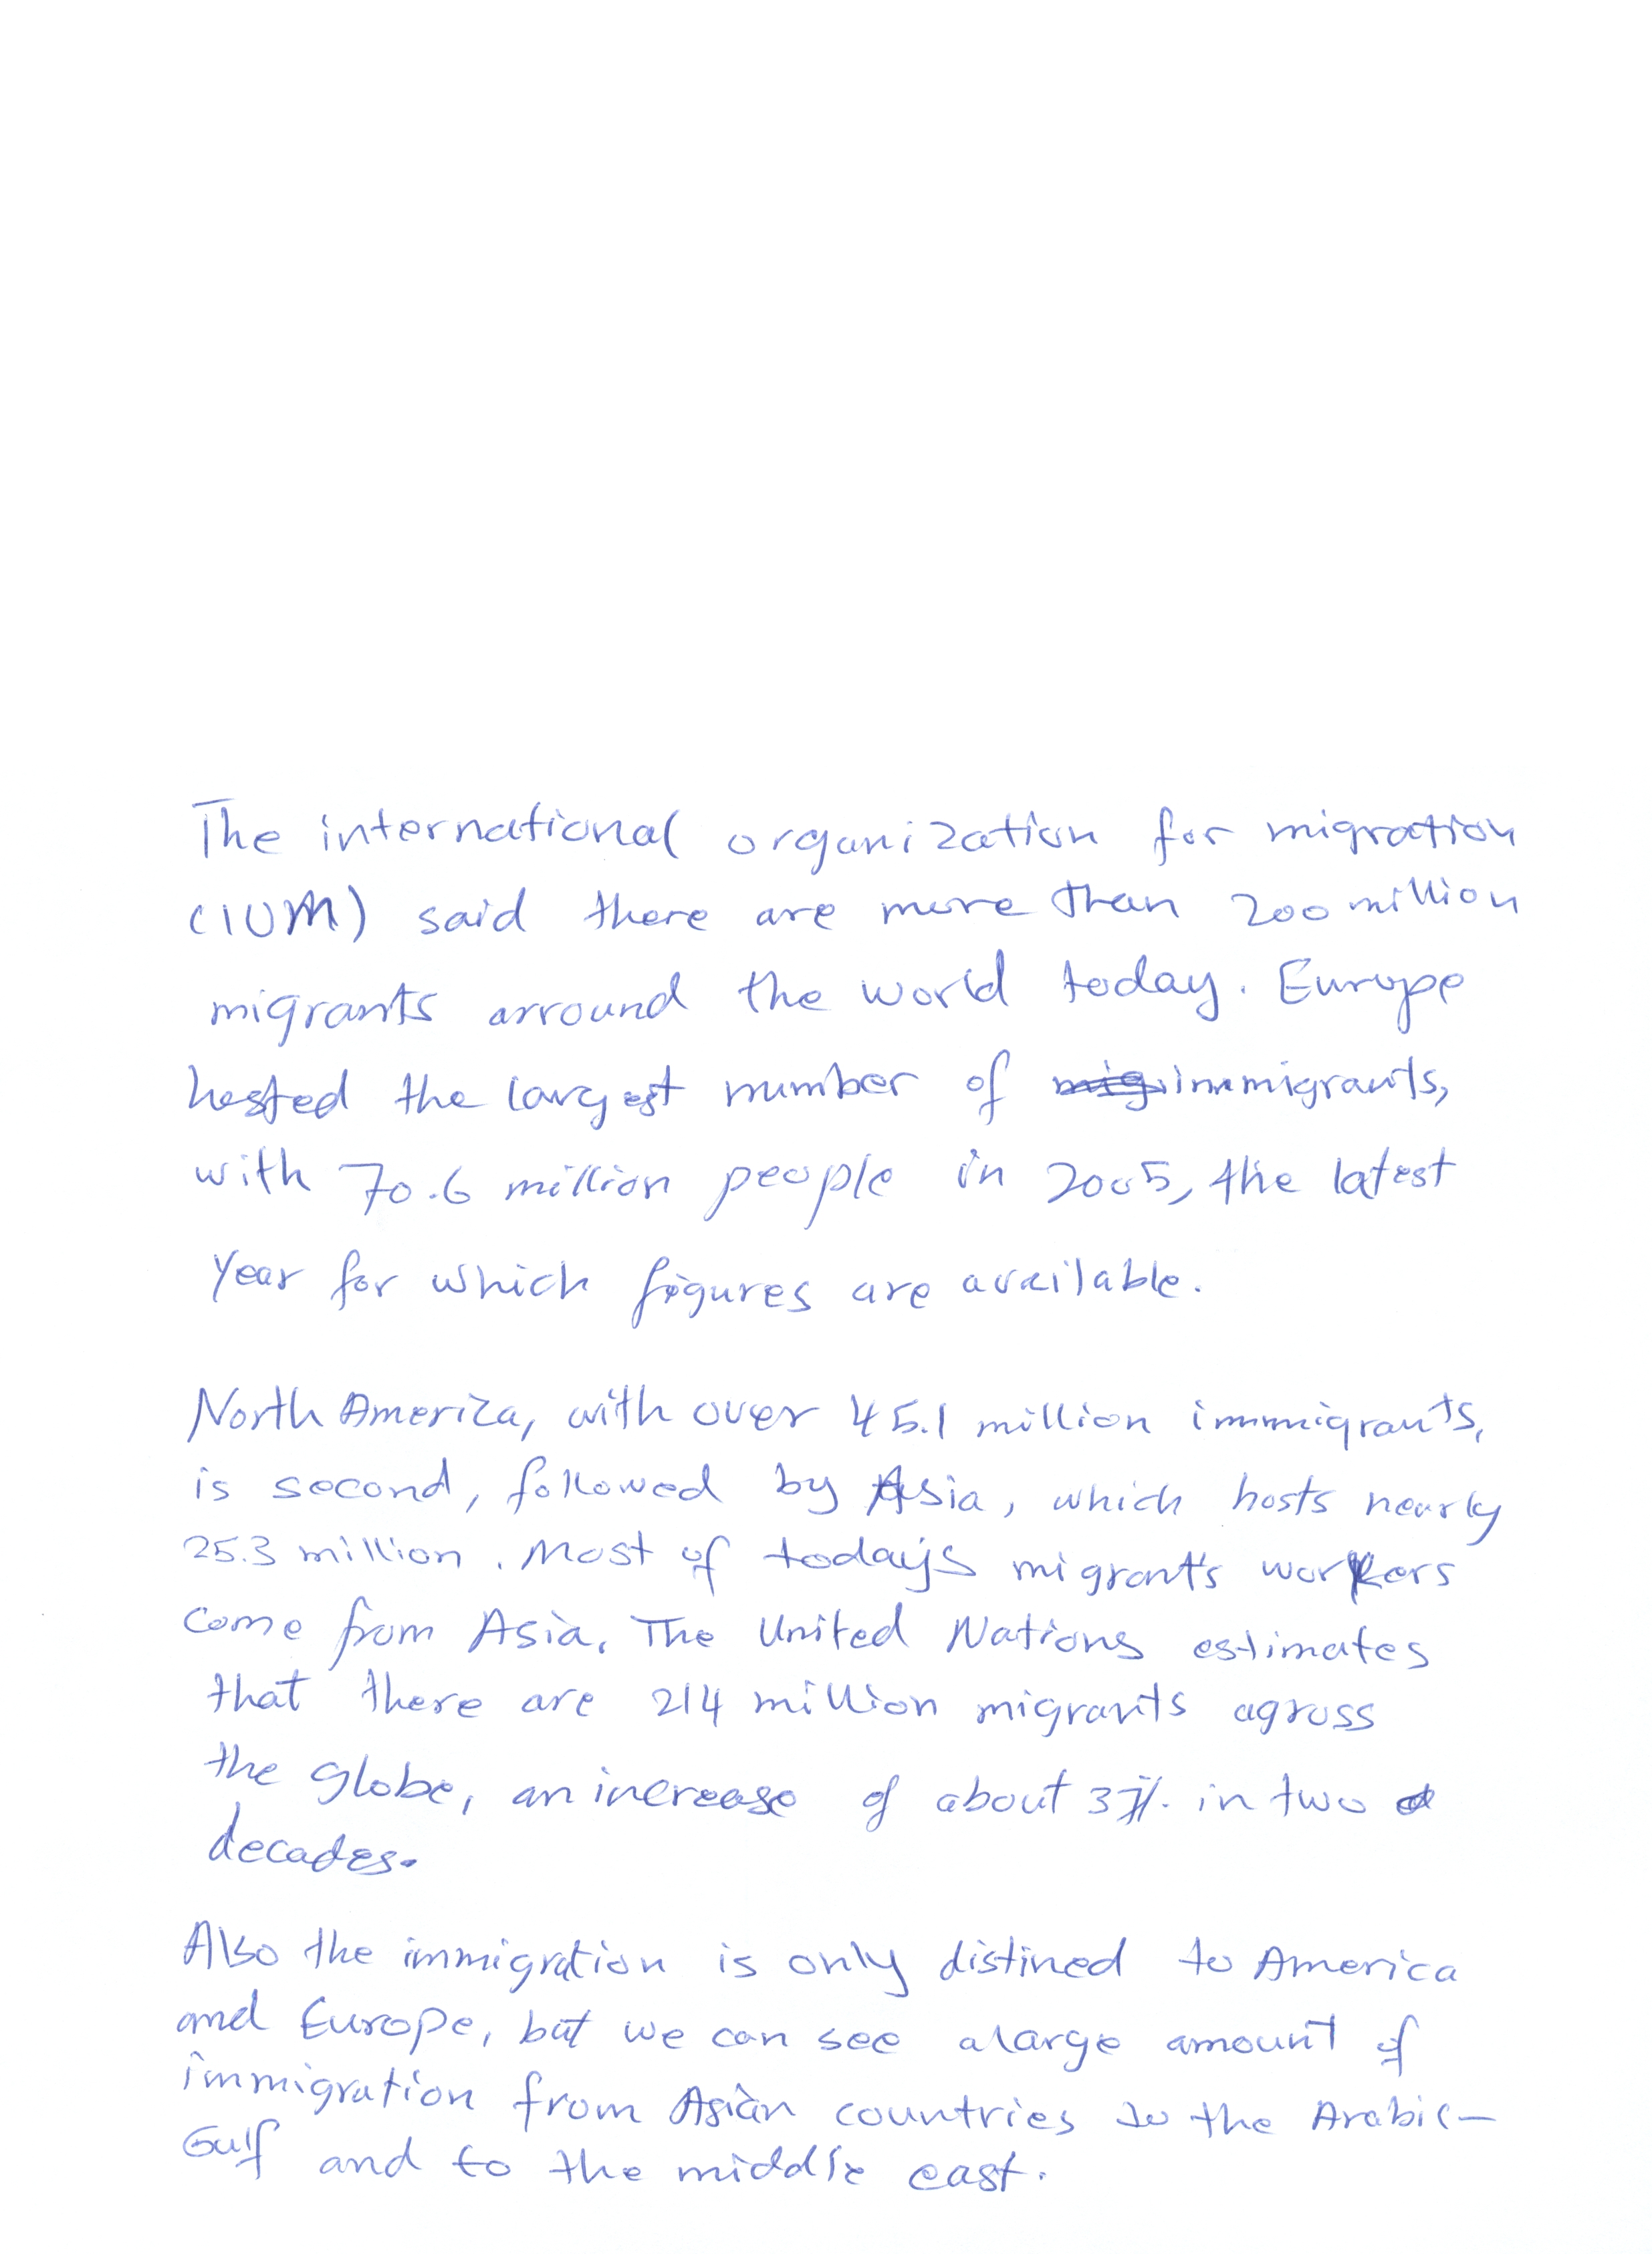 The international organization for migration
(IOM) said there are more than 200 million
migrants arround the world today. Europe
hosted the largest number of immigrants,
with 70.6 million people in 2005, the latest
Year for which figures are available.
North America, with over 45.1 million immigrants,
is second, followed by Asia, which hosts nearly
25.3 million. Most of today's migrants workers
come from Asia. The United Nations estimates
that there are 214 million migrants agross
the globe, an increase of about 37% in two
decades.
Also the immigration is only distined to America
and Europe, but we can see a large amount of
immigration from Asian countries to the Arabic-
Gulf and to the middle east.